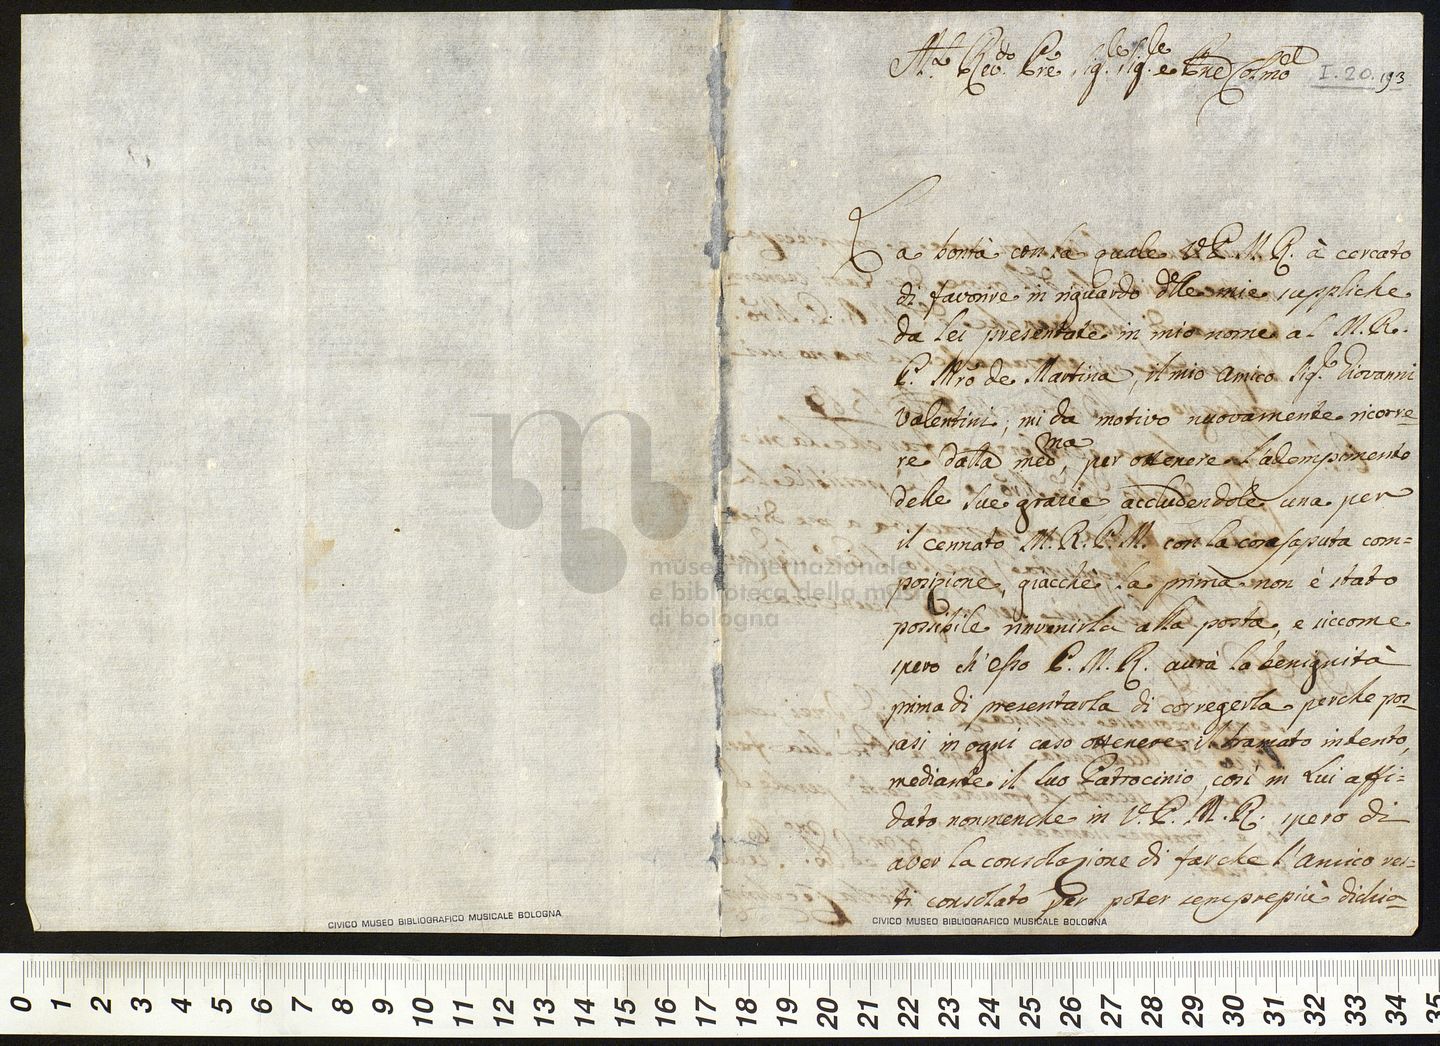 Alt.o Rev.do Pre Sig.le Sig.le e Pne Colmo
I. 20. 193
La bontà con la quale V. P. M. R. à cercato
di favorire in riguardo delle mie suppliche
da lei presentate in mio nome al M. R.
P. Mro de Martina, il mio amico Sig.r Giovanni
Valentini, mi da motivo nuovamente ricorre=
re dalla medma, per ottenere l'adempimento
delle sue grazie accludendole una per
il cennato M. R. P. M. con la consaputa com=
posizione, giacche la prima non è stato
possibile rinvenirla alla posta, e siccome
spero ch'esso P. M. R. aurà la benignità
prima di presentarla di corregerla perche pos=
sasi in ogni caso ottenere il bramato intento,
mediante il suo Patrocinio, così in Lui affi=
dato nonmenche in V. P. M. R. spero di
aver la consolazione di far che l'Amico res=
ti consolato per poter semprepiù dichia=
museo internazionale
e biblioteca della musica
di bologna
CIVICO MUSEO BIBLIOGRAFICO MUSICALE BOLOGNA
CIVICO MUSEO BIBLIOGRAFICO MUSICALE BOLOGNA
0 1 2 3 4 5 6 7 8 9 10 11 12 13 14 15 16 17 18 19 20 21 22 23 24 25 26 27 28 29 30 31 32 33 34 35